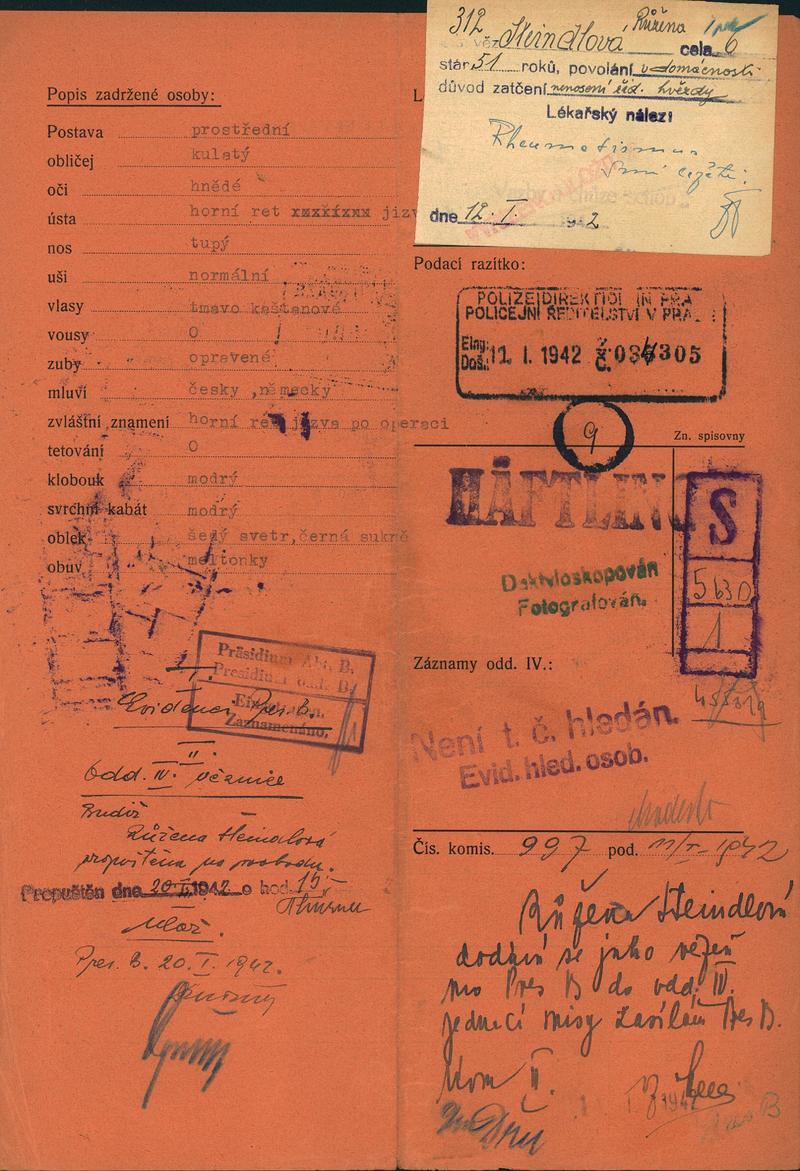 Popis zadržené osoby:
Postava prostřední
obličej kulatý
oči hnědé
ústa horní ret xxxxíxxx jizv
nos tupý
uši normální
vlasy tmavo kaštanové
vousy O
zuby opravené
mluví česky ,německy
zvláštní znamení horní ret jizva po operaci
tetování O
klobouk modrý
svrchní kabát modrý
oblek šedý svetr,černá sukně
obuv meltonky
Präsidium Abt. B.
Presidium odd. B.
Zaznamenáno.
Evidence Pres. B.
II.
Odd. IV. věznice
Budiž
Růžena Steindlová
propuštěna na svobodu.
Propuštěn dne 20.I.1942 o hod. 15
Pres. B. 20. I. 1942.
312 Růžena
věz. Steindlová cela 6
stár 51 roků, povolání v domácnosti
důvod zatčení nenošení žid. hvězdy
Lékařský nález:
Rheumatismus
dne 12. I. 1942
L
Podací razítko:
POLIZEIDIREKTION IN PRA
POLICEJNÍ ŘEDITELSTVÍ V PRA
Eing.:
Doš.: 11. I. 1942 Z. č. 034305
9
Zn. spisovny
HÄFTLING
S
5630
1
Daktyloskopován
Fotografován.
Záznamy odd. IV.:
Není t. č. hledán.
Evid. hled. osob.
Čís. komis. 997 pod. 11/I-1942
Růžena Steindlová
dodává se jako vězeň
pro Pres B do odd. IV.
Pres B.
Kom II.
Pres B